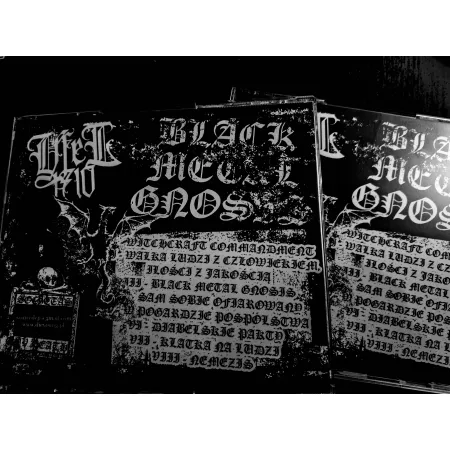 BLACK
METAL
GNOSIS
WITCHCRAFT COMMANDMENT
WALKA LUDZI Z CZŁOWIEKIEM,
ILOŚCI Z JAKOŚCIĄ
III - BLACK METAL GNOSIS
SAM SOBIE OFIAROWANY
W POGARDZIE POSPÓLSTWA
VI - DIABELSKIE PAKTY
VII - KLATKA NA LUDZI
VIII - NEMEZIS
BLACK
META
GNOS
WITCHCRAFT COMM
WALKA LUDZI Z CZ
ILOŚCI Z JAKO
III - BLACK META
SAM SOBIE OFIA
W POGARDZIE POS
VI - DIABELSKIE
VII - KLATKA NA
VIII - NEMEZIS